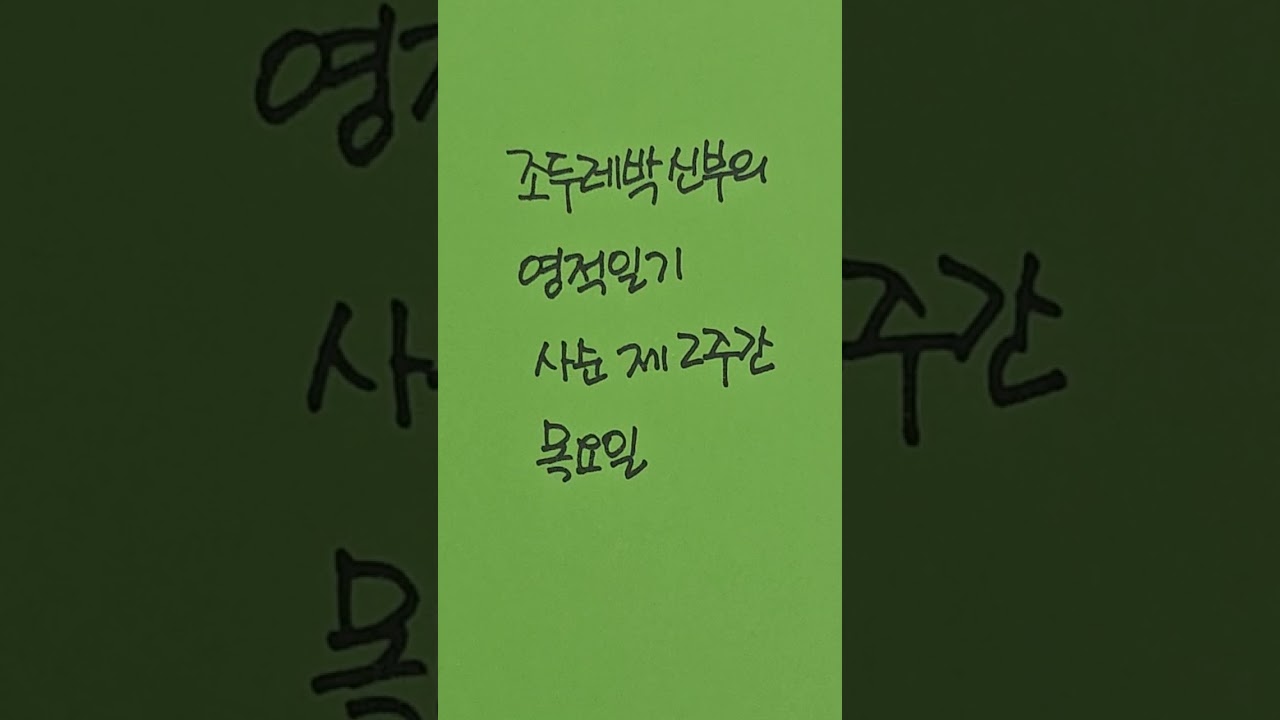 조두레박 신부의
영적일기
사순 제2주간
목요일